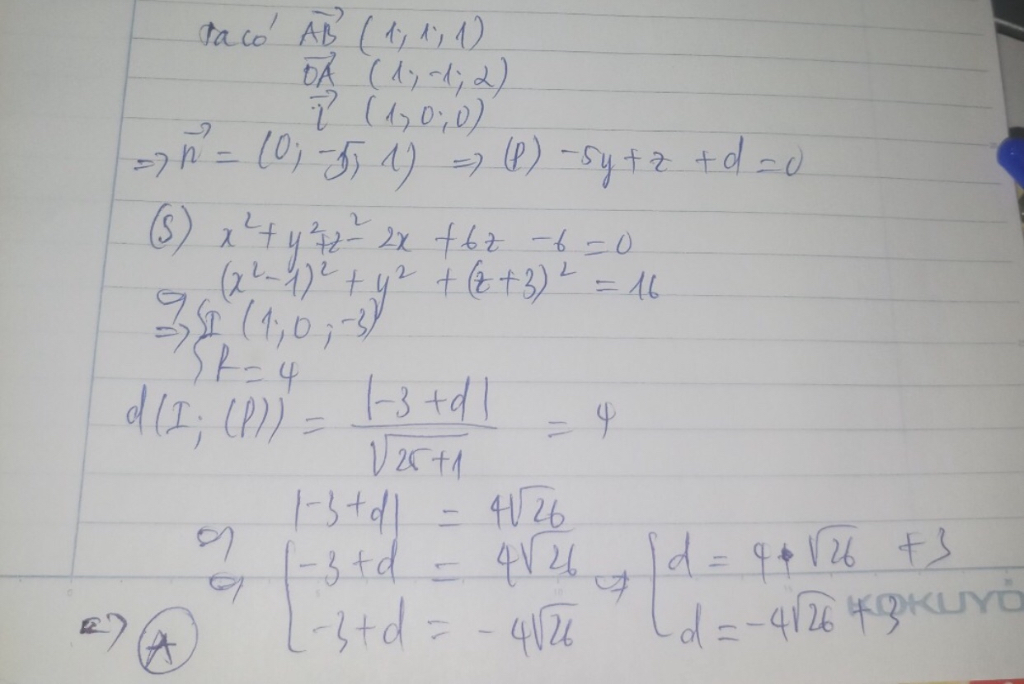 Ta có AB→ (1; 1; 1)
OA→ (1; -1; 2)
i→ (1; 0; 0)
=> n→ = (0; -5; 1) => (P) -5y + z + d = 0
(S) x² + y² + z² - 2x + 6z - 6 = 0
(x² - 1)² + y² + (z + 3)² = 16
=> { I (1; 0; -3)
{ R = 4
d(I; (P)) = |-3 + d| / √(25 + 1) = 4
|-3 + d| = 4√26
⇔ [ -3 + d = 4√26 ⇔ [ d = 4√26 + 3
[ -3 + d = -4√26 [ d = -4√26 + 3
KOKUYO
=> A